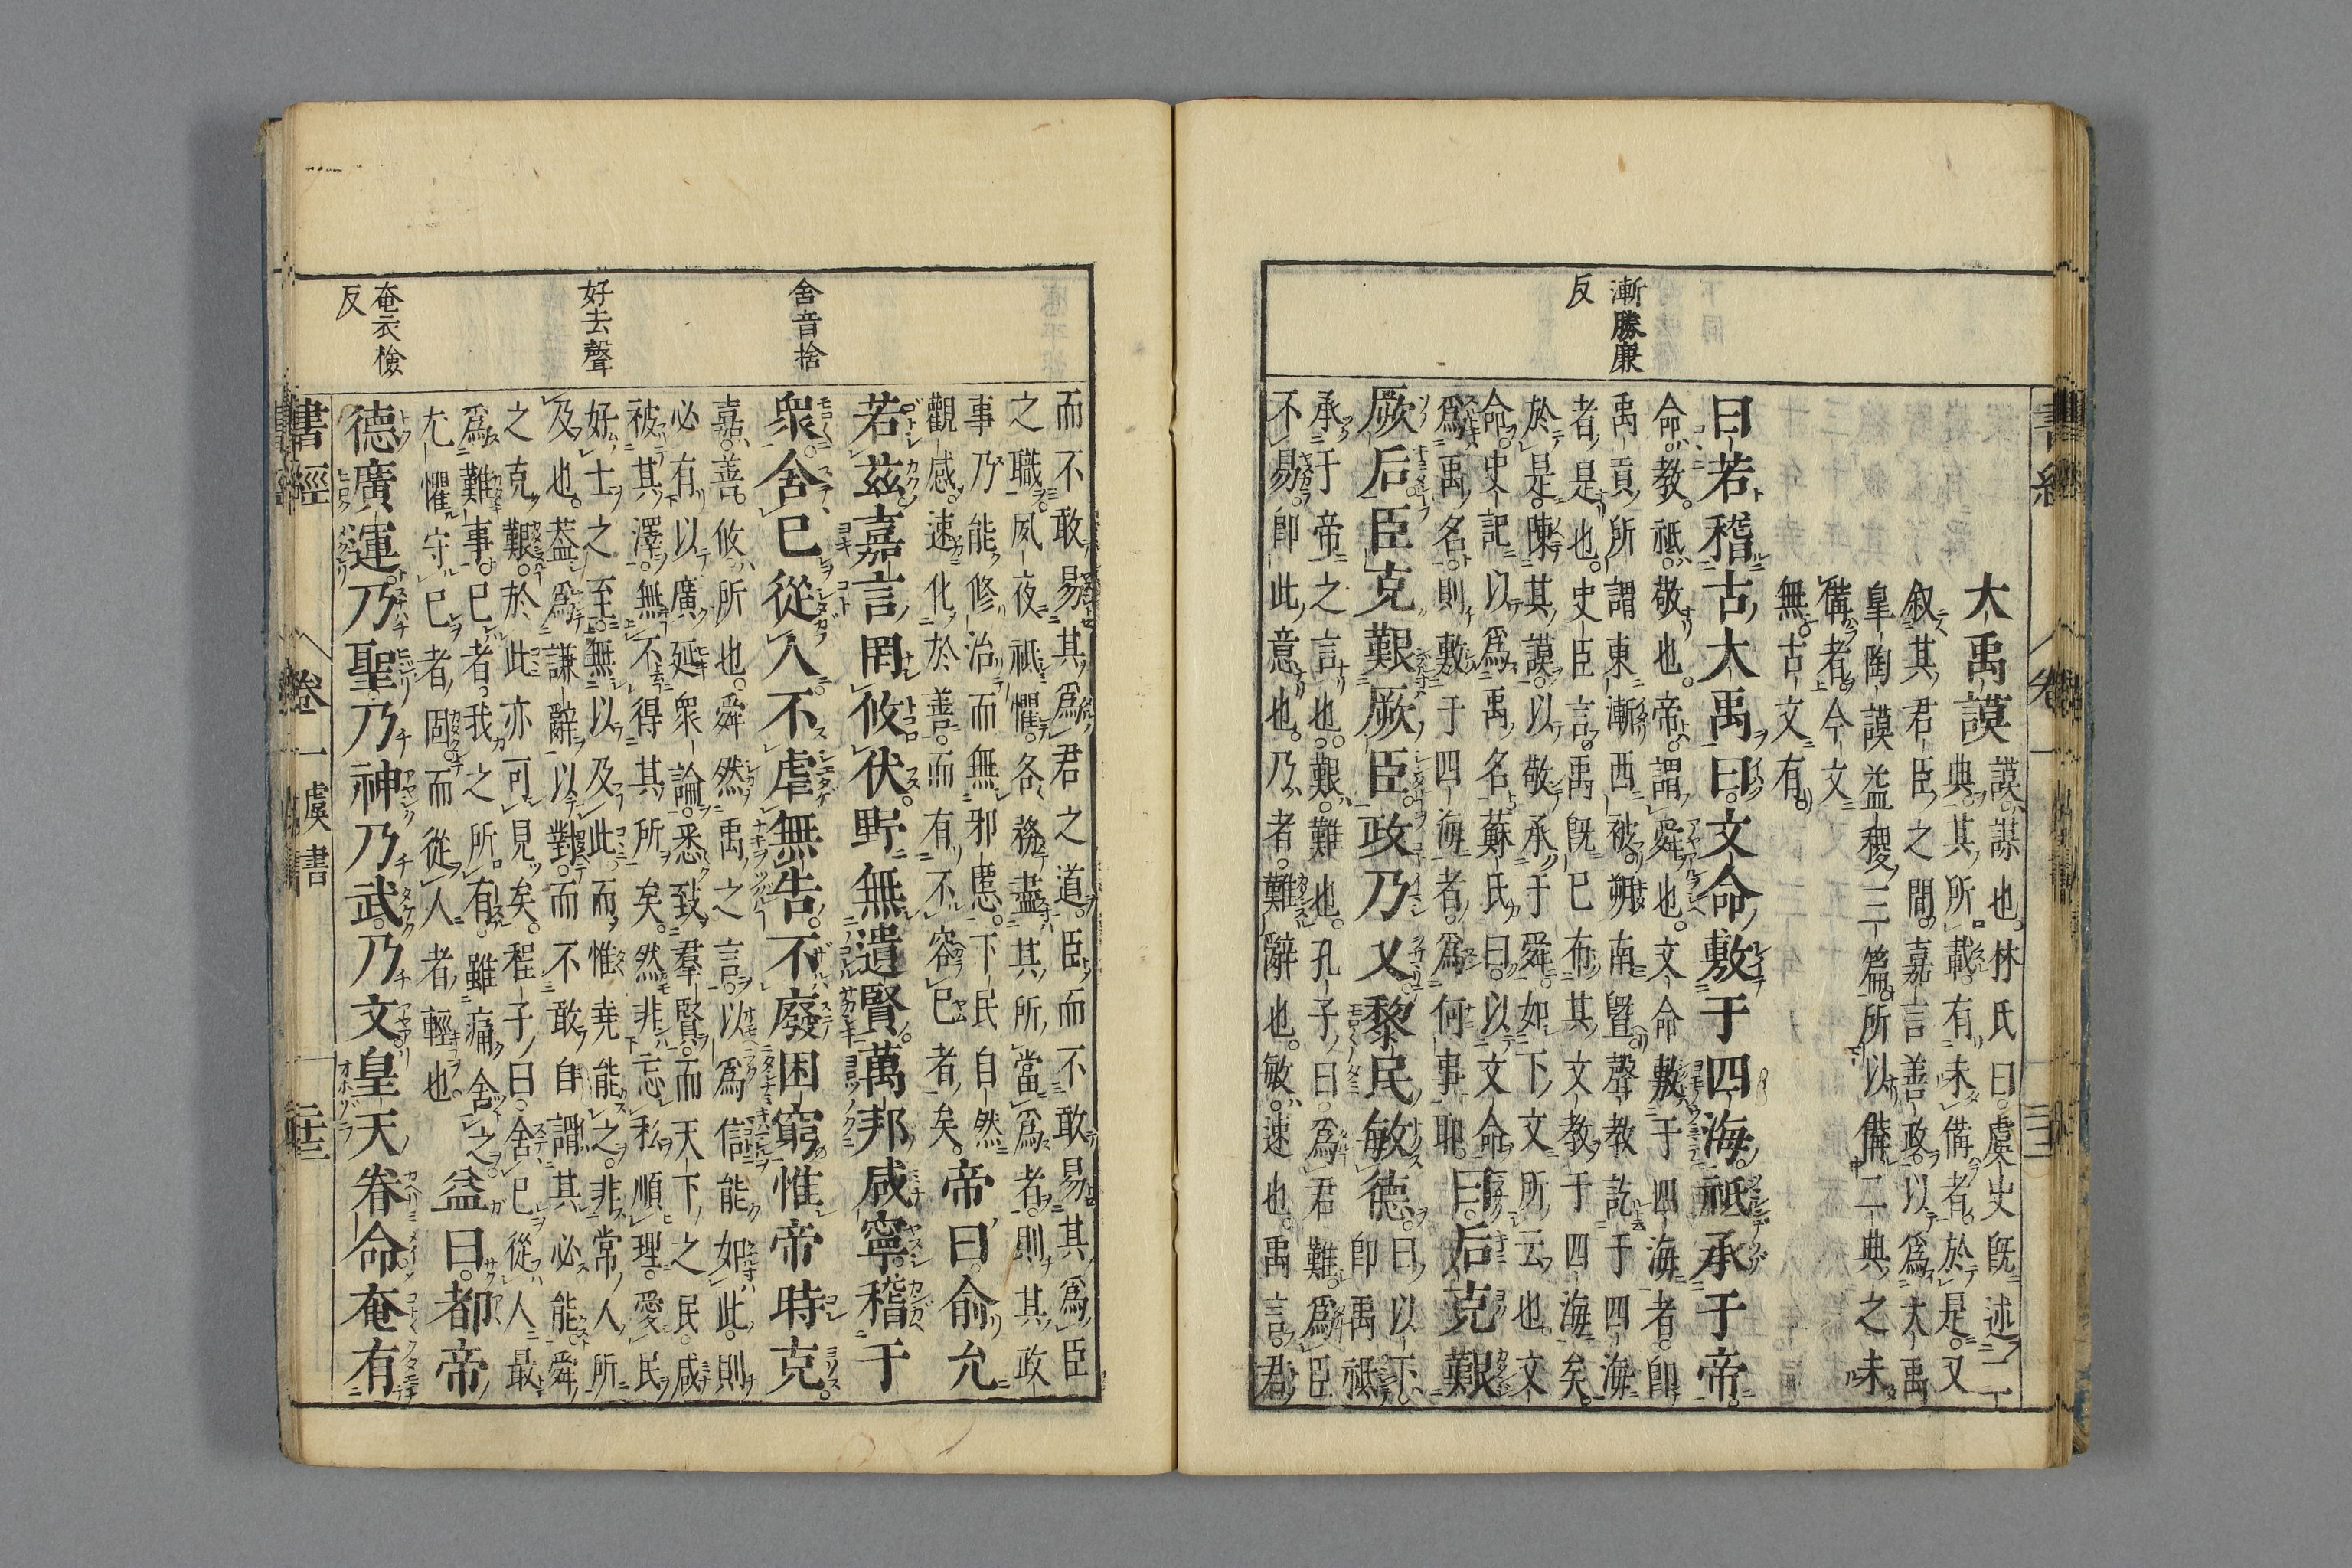 漸勝廉
反
大禹謨
謨謀也林氏曰虞史旣述二
典其所載有未備者於是又
叙其君臣之間嘉言善政以爲大禹
皐陶謨益稷三篇所以備二典之未
備者今文
無古文有
曰若稽古大禹曰文命敷于四海祗承于帝
命教祗敬也帝謂舜也文命敷于四海者卽
禹貢所謂東漸西被朔南曁聲教訖于四海
者是也史臣言禹旣已布其文教于四海矣
於是陳其謨以敬承于舜如下文所云也文
命史記以爲禹名蘇氏曰以文命
爲禹名則敷于四海者爲何事耶
曰后克艱
厥后臣克艱厥臣政乃乂黎民敏德
曰以下
卽禹祗
承于帝之言也艱難也孔子曰爲君難爲臣
不易卽此意也乃者難辭也敏速也禹言君
舍音捨
好去聲
奄衣檢
反
而不敢易其爲君之道臣而不敢易其爲臣
之職夙夜祗懼各務盡其所當爲者則其政
事乃能修治而無邪慝下民自然
觀感速化於善而有不容已者矣
帝曰俞允
若茲嘉言罔攸伏野無遺賢萬邦咸寧稽于
衆舍已從人不虐無告不廢困窮惟帝時克
嘉善攸所也舜然禹之言以爲信能如此則
必有以廣延衆論悉致羣賢而天下之民咸
被其澤無不得其所矣然非忘私順理愛民
好士之至無以及此而惟堯能之非常人所
及也蓋爲謙辭以對而不敢自謂其必能舜
之克艱於此亦可見矣程子曰舍已從人最
爲難事已者我之所有雖痛舍之
尤懼守已者固而從人者輕也
益曰都帝
德廣運乃聖乃神乃武乃文皇天眷命奄有
書經
卷一
虞書